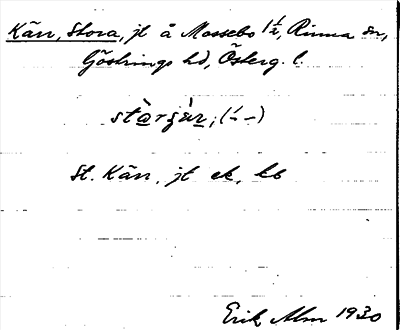 Kärr, Stora, jl å Mossebo 1½, Rinna sn,
Göstrings hd, Österg. l.
stàrʒær, (´ –)
St. Kärr, jl ek, kb
Erik Alm 1930